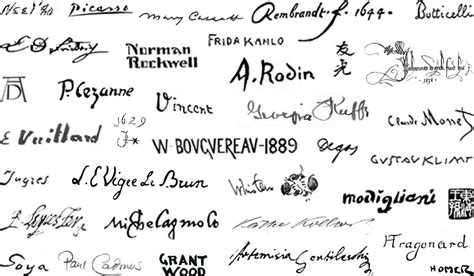 Picasso
Mary Cassatt
Rembrandt f. 1644.
Botticelli
FRIDA KAHLO
Norman
Rockwell
A. Rodin
友
光
P. Cezanne
Vincent
Georgia O'Keeffe
Claude Monet
1629
E Vuillard
W-BOVGVEREAV-1889
Degas
GUSTAV KLIMT
Ingres
L.E. Vigee Le Brun
Whistler
modigliani
Michelagniolo
Käthe Kollwitz
Fragonard
Goya
Paul Cadmus
GRANT
WOOD
Artemisia Gentileschi
HOMER